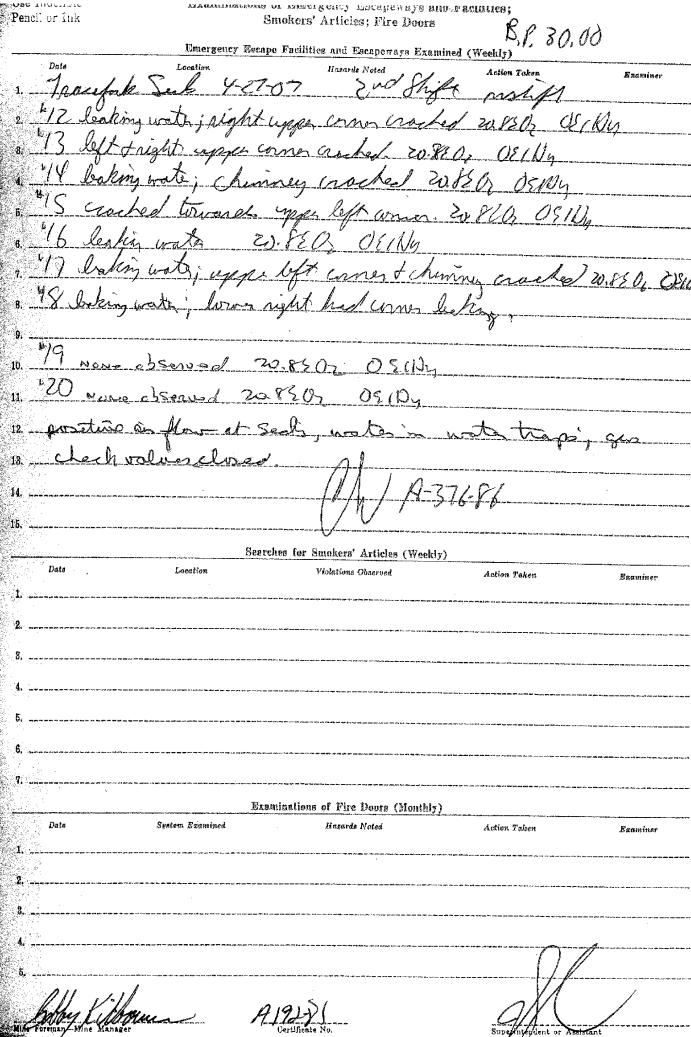 Use Indelible
Pencil or Ink
Examinations of Emergency Escapeways and Facilities;
Smokers' Articles; Fire Doors
B.P. 30.00
Emergency Escape Facilities and Escapeways Examined (Weekly)
Date Location Hazards Noted Action Taken Examiner
1. 4-27-07 2nd Shift
2. #12 leaking water; right upper corner cracked 20.8% O2 0% CH4
3. #13 left + right upper corner cracked. 20.8% O2 0% CH4
4. #14 leaking water; chimney cracked 20.8% O2 0% CH4
5. #15 cracked towards upper left corner. 20.8% O2 0% CH4
6. #16 leaking water 20.8% O2 0% CH4
7. #17 leaking water; upper left corner + chimney cracked 20.8% O2 0% CH4
8. #18 leaking water; lower right hand corner leaking.
9.
10. #19 none observed 20.8% O2 0% CH4
11. #20 none observed 20.8% O2 0% CH4
12. positive air flow at seals, water in water traps, gas
13. check valves closed.
14. A-376-86
15.
Searches for Smokers' Articles (Weekly)
Date Location Violations Observed Action Taken Examiner
1.
2.
3.
4.
5.
6.
7.
Examinations of Fire Doors (Monthly)
Date System Examined Hazards Noted Action Taken Examiner
1.
2.
3.
4.
5.
Bobby Kilbourne A192-81
Mine Foreman—Mine Manager Certificate No. Superintendent or Assistant